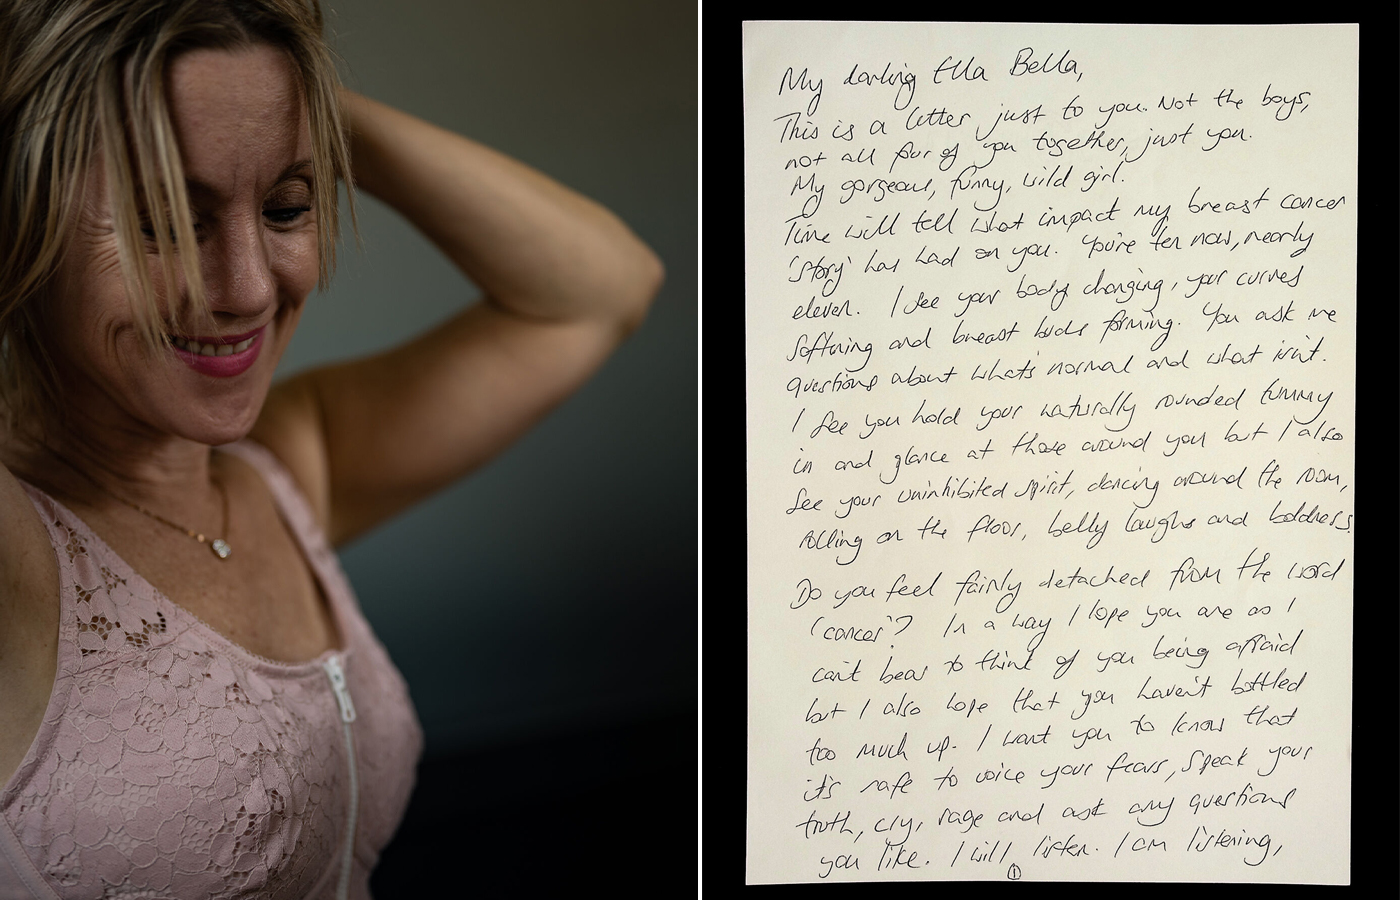 My darling Ella Bella,
This is a letter just to you. Not the boys,
not all four of you together, just you.
My gorgeous, funny, wild girl.
Time will tell what impact my breast cancer
'story' has had on you. You're ten now, nearly
eleven. I see your body changing, your curves
softening and breast buds forming. You ask me
questions about what's normal and what isn't.
I see you hold your naturally rounded tummy
in and glance at those around you but I also
see your uninhibited spirit, dancing around the room,
rolling on the floor, belly laughs and boldness.
Do you feel fairly detached from the word
'cancer'? In a way I hope you are as I
can't bear to think of you being afraid
but I also hope that you haven't bottled
too much up. I want you to know that
it's safe to voice your fears, speak your
truth, cry, rage and ask any questions
you like. I will listen. I am listening,
1